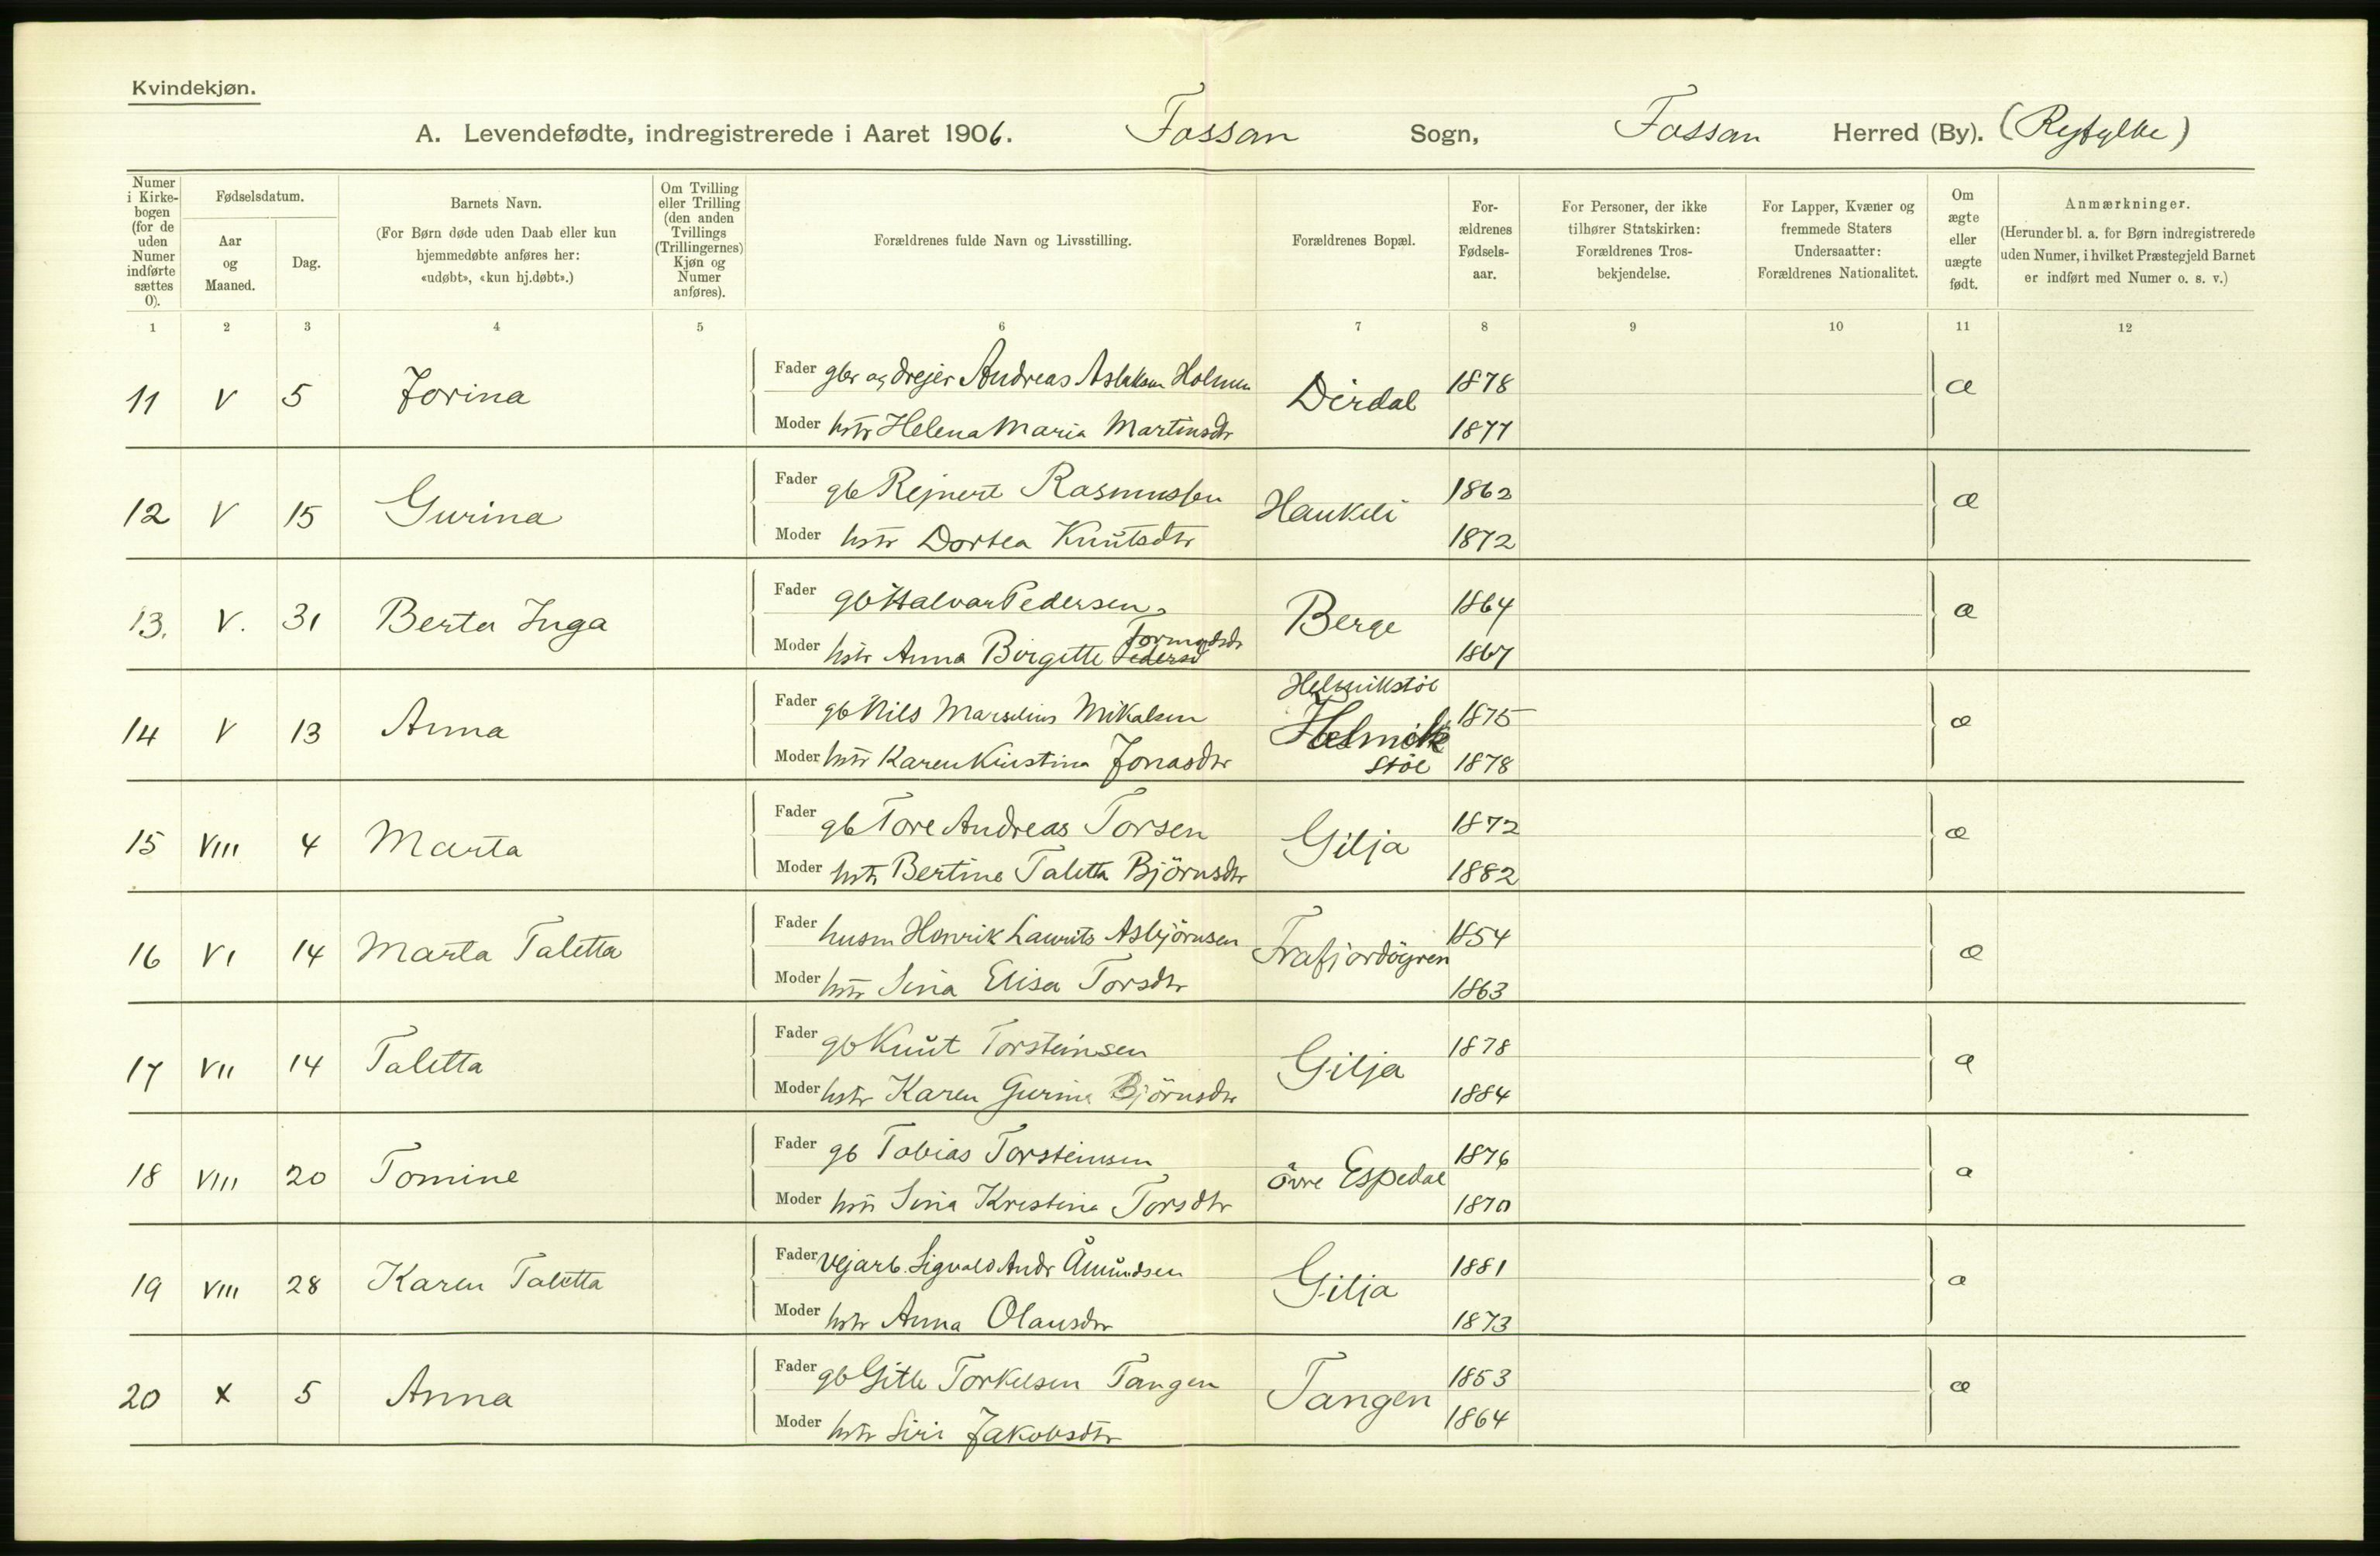 Kvindekjøn.
A. Levendefødte, indregistrerede i Aaret 1906. Fossan Sogn, Fossan Herred (By). (Ryfylke)
Numer i Kirkebogen (for de uden Numer indførte sættes 0).
Fødselsdatum.
Aar og Maaned.
Dag.
Barnets Navn.
(For Børn døde uden Daab eller kun hjemmedøbte anføres her: «udøbt», «kun hj.døbt».)
Om Tvilling eller Trilling (den anden Tvillings (Trillingernes) Kjøn og Numer anføres).
Forældrenes fulde Navn og Livsstilling.
Forældrenes Bopæl.
For-
ældrenes
Fødsels-
aar.
For Personer, der ikke tilhører Statskirken: Forældrenes Trosbekjendelse.
For Lapper, Kvæner og fremmede Staters Undersaatter: Forældrenes Nationalitet.
Om ægte eller uægte født.
Anmærkninger.
(Herunder bl. a. for Børn indregistrerede uden Numer, i hvilket Præstegjeld Barnet er indført med Numer o. s. v.)
1 2 3 4 5 6 7 8 9 10 11 12
11 V 5 Jorina Fader gbr og drejer Andreas Aslaksen Holmen Dirdal 1878 æ
Moder hstr Helena Maria Martinsdtr 1877
12 V 15 Gurina Fader gb Rejnert Rasmussen Haukeli 1862 æ
Moder hstr Dortea Knutsdtr 1872
13. V. 31 Berta Inga Fader gb Halvar Pedersen Berge 1864 æ
Moder hstr Anna Birgitte Pedersd Tormodsdr 1867
14 V 13 Anna Fader gb Nils Marselius Mikalsen Helmikstøl 1875 æ
Moder hstr Karen Kristina Jonasdtr Helmik støl 1878
15 VIII 4 Marta Fader gb Tore Andreas Torsen Gilja 1872 æ
Moder hstr Bertine Taletta Björnsdtr 1882
16 VI 14 Marta Taletta Fader husm Henrik Laurits Asbjörnsen Frafjordöyren 1854 æ
Moder hstr Sina Elisa Torsdtr 1863
17 VII 14 Taletta Fader gb Knut Torsteinsen Gilja 1878 æ
Moder hstr Karen Gurina Björnsdtr 1884
18 VIII 20 Tomine Fader gb Tobias Torsteinsen övre Espedal 1876 æ
Moder hstr Sina Kristina Torsdtr 1870
19 VIII 28 Karen Taletta Fader Vejarb. Sigvald Andr Åmundsen Gilja 1881 æ
Moder hstr Anna Olausdtr 1873
20 X 5 Anna Fader gb Gitle Torkelsen Tangen Tangen 1853 æ
Moder hstr Siri Jakobsdtr 1864